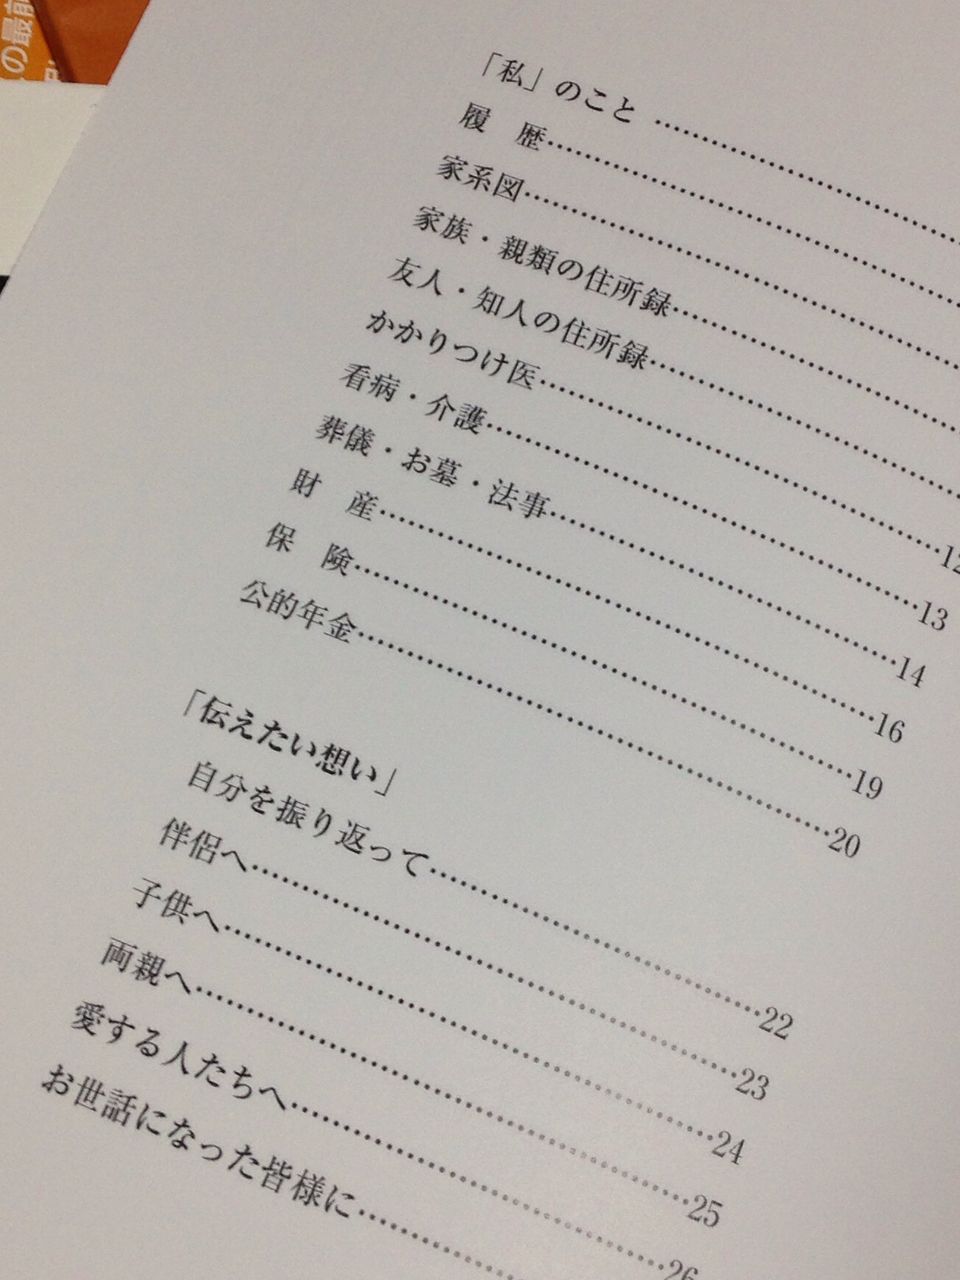 の最前
「私」のこと ……………………
履　歴……………………
家系図……………………
家族・親類の住所録……………………
友人・知人の住所録……………………
かかりつけ医……………………12
看病・介護……………………13
葬儀・お墓・法事……………………14
財　産……………………16
保　険……………………19
公的年金……………………20
「伝えたい想い」
自分を振り返って……………………22
伴侶へ……………………23
子供へ……………………24
両親へ……………………25
愛する人たちへ……………………26
お世話になった皆様に……………………